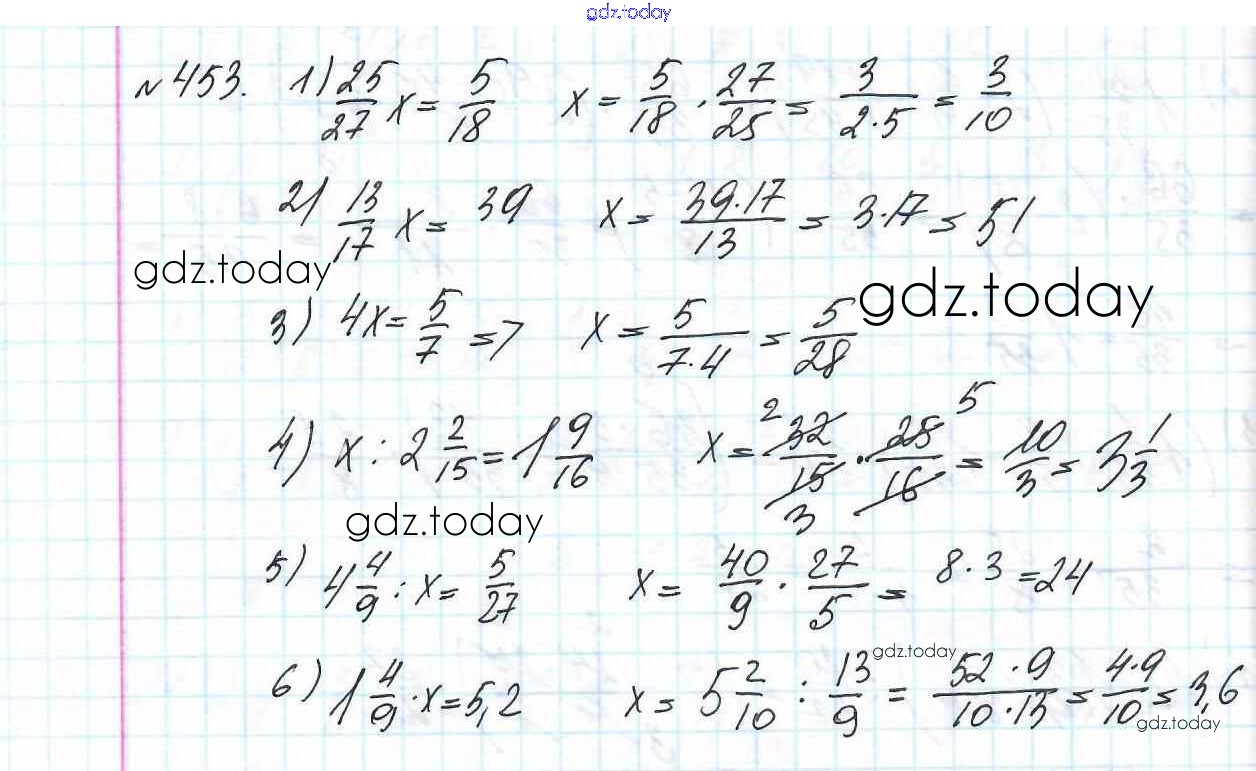 gdz.today
№453. 1) 25/27 x = 5/18 x = 5/18 · 27/25 = 3/(2·5) = 3/10
2) 13/17 x = 39 x = (39·17)/13 = 3·17 = 51
gdz.today
gdz.today
3) 4x = 5/7 =7 x = 5/(7·4) = 5/28
4) x : 2 2/15 = 1 9/16 x = 2 32/15 3 · 25/16 5 = 10/3 = 3 1/3
gdz.today
5) 4 4/9 : x = 5/27 x = 40/9 · 27/5 = 8·3 = 24
gdz.today
6) 1 4/9 · x = 5,2 x = 5 2/10 : 13/9 = (52·9)/(10·13) = (4·9)/10 = 3,6
gdz.today